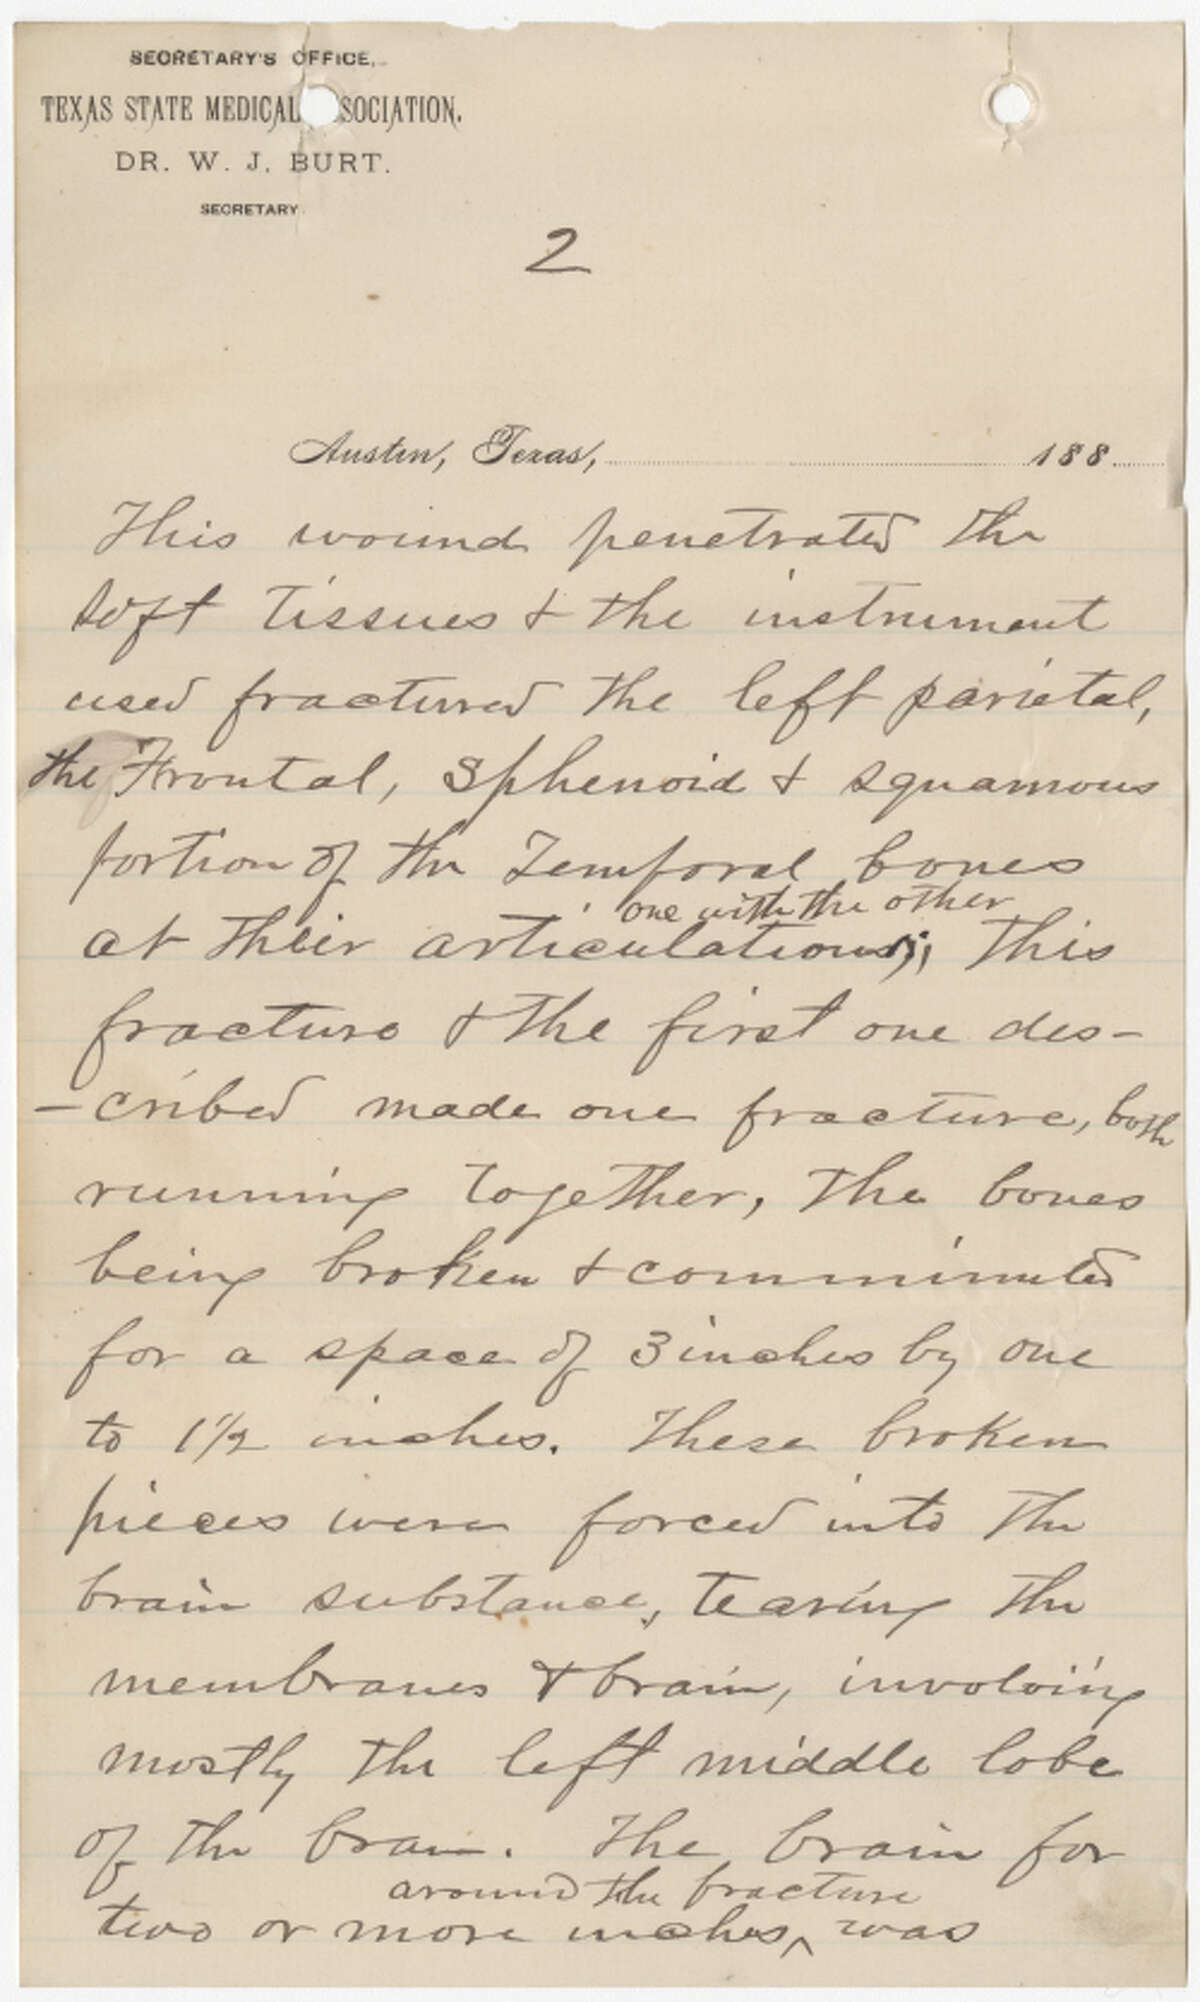 SECRETARY'S OFFICE,
TEXAS STATE MEDICAL SSOCIATION.
DR. W. J. BURT.
SECRETARY.
2
Austin, Texas, 188
This wound penetrated the
soft tissues & the instrument
used fractured the left parietal,
the Frontal, Sphenoid & squamous
portion of the Temporal bones
one with the other
at their articulations; this
fracture & the first one des-
-cribed made one fracture, both
running together, the bones
being broken & comminuted
for a space of 3 inches by one
to 1 1/2 inches. These broken
pieces were forced into the
brain substance, tearing the
membranes & brain, involving
mostly the left middle lobe
of the brain. The brain for
around the fracture
two or more inches, ^ was